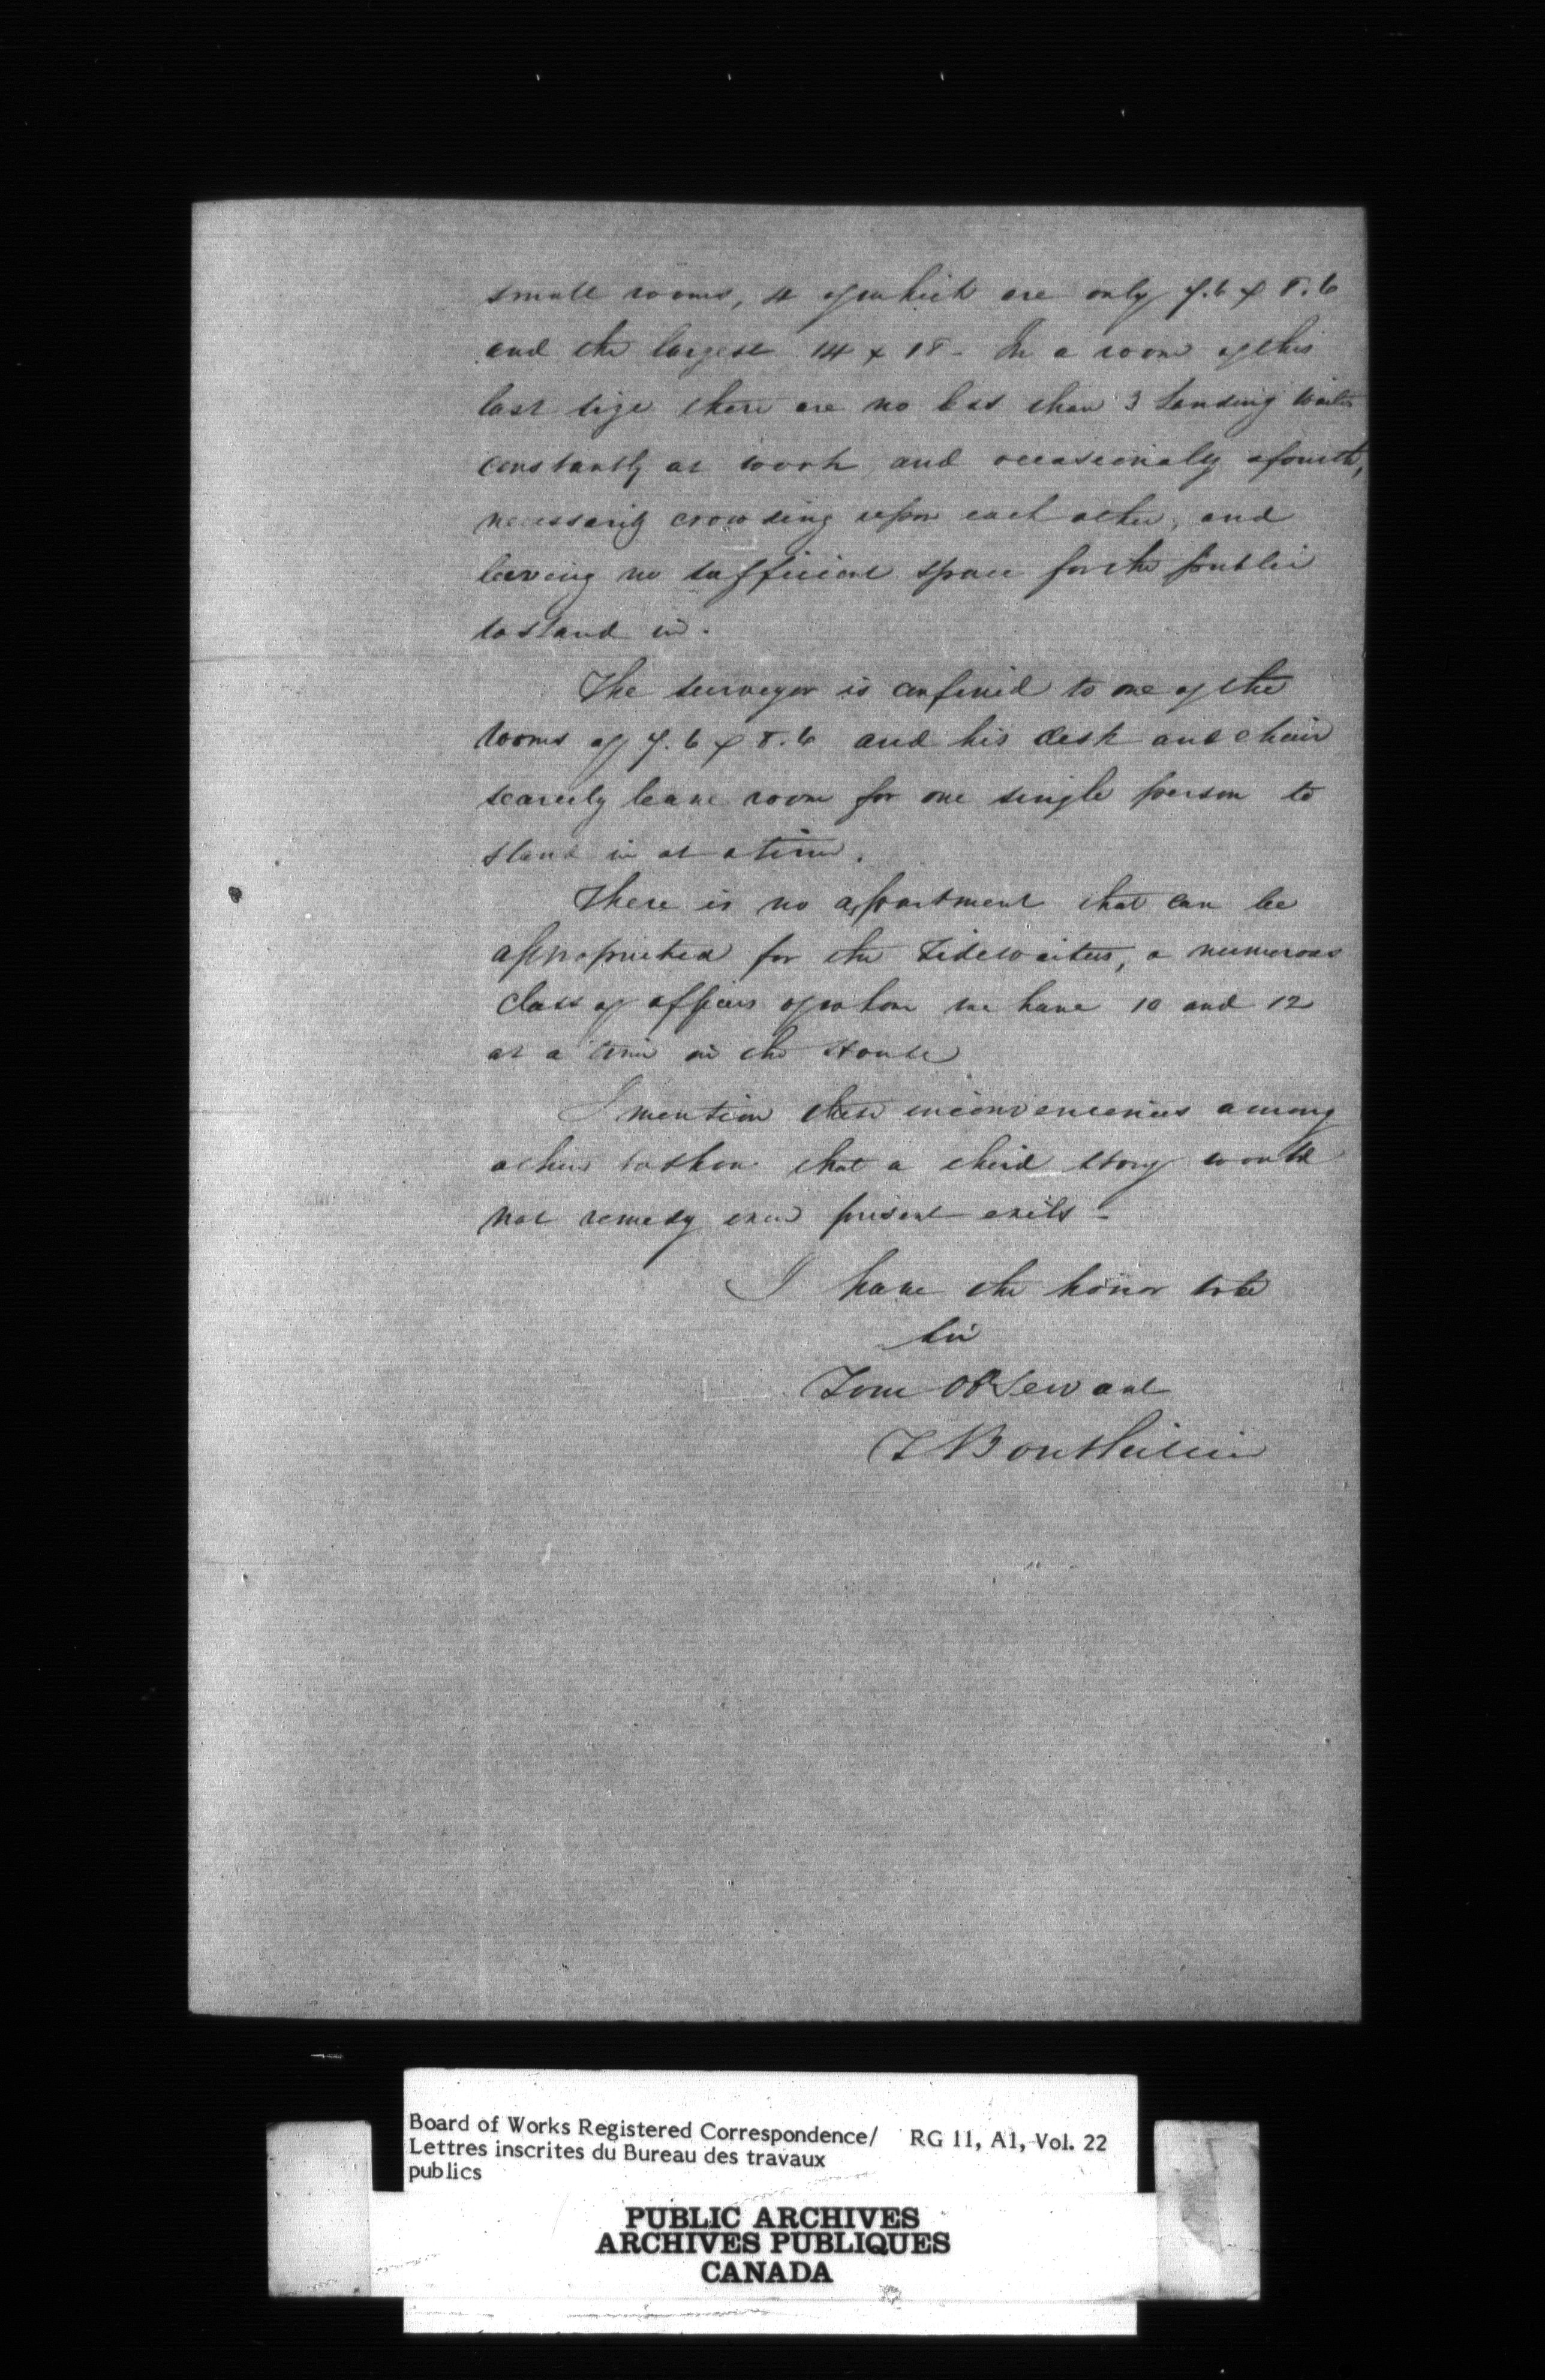 small rooms, 4 of which are only 7.6 x 8.6
and the largest 14 x 18 - In a room of this
last size there are no less than 3 Landing Waiters
constantly at work, and occasionaly a fourth,
necessarily crowding upon each other, and
leaving no sufficient space for the public
to stand in.
The surveyor is confined to one of the
rooms of 7.6 x 8.6 and his desk and chair
scarcely leave room for one single person to
stand in at a time.
There is no apartment that can be
appropriated for the Tidewaiters, a numerous
class of officers of whom we have 10 and 12
at a time in the House
I mention these inconveniences among
others to show that a third story would
not remedy even present evils -
I have the honor to be
Sir
Your Ob Servant
J Bouthillier
Board of Works Registered Correspondence/ RG 11, A1, Vol. 22
Lettres inscrites du Bureau des travaux
publics
PUBLIC ARCHIVES
ARCHIVES PUBLIQUES
CANADA